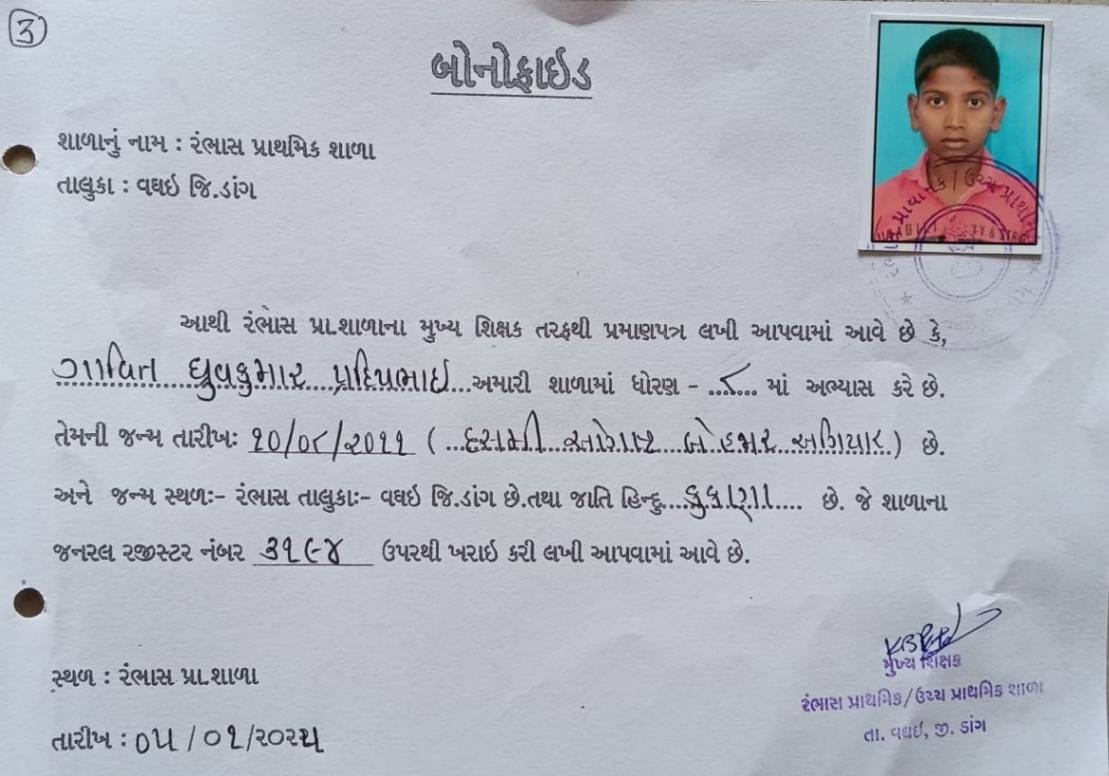 ૩
બોનોફાઇડ
શાળાનું નામ : રંભાસ પ્રાથમિક શાળા
તાલુકા : વઘઇ જિ.ડાંગ
આથી રંભાસ પ્રા.શાળાના મુખ્ય શિક્ષક તરફથી પ્રમાણપત્ર લખી આપવામાં આવે છે કે,
ગાવિત ધ્રુવકુમાર પ્રદિપભાઈ અમારી શાળામાં ધોરણ - ૮ માં અભ્યાસ કરે છે.
તેમની જન્મ તારીખઃ ૧૦/૦૮/૨૦૧૧ ( દસમી ઓગષ્ટ બે હજાર અગિયાર ) છે.
અને જન્મ સ્થળઃ- રંભાસ તાલુકાઃ- વઘઇ જિ.ડાંગ છે.તથા જાતિ હિન્દુ કુકણા છે. જે શાળાના
જનરલ રજીસ્ટર નંબર ૩૧૯૪ ઉપરથી ખરાઇ કરી લખી આપવામાં આવે છે.
મુખ્ય શિક્ષક
સ્થળ : રંભાસ પ્રા.શાળા
રંભાસ પ્રાથમિક/ઉચ્ચ પ્રાથમિક શાળા
તા. વઘઇ, જી. ડાંગ
તારીખ : ૦૫/૦૧/૨૦૨૫